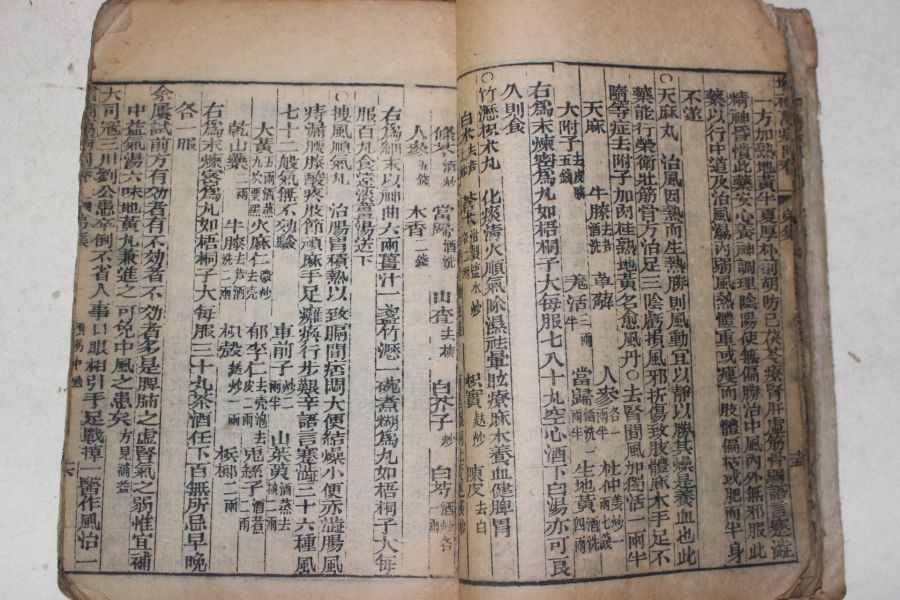 一方加熟地黃牛夏厚朴前胡防己茯苓療腎肝虛筋骨弱語言蹇澁
精神昏憒此藥安心養神調理陰陽使無偏勝治中風內外無邪服此
藥以行中道及治風濕內弱風熱體重或瘦而肢體偏枯或肥而半身
不遂
○天麻丸 治風因熱而生熱勝則風動宜以靜以勝其燥是養血也此
藥能行榮衛壯筋骨方治足三陰虧損風邪折傷致肢體麻木手足不
隨等症去附子加肉桂熟地黃名愈風丹○去腎間風加獨活一兩半
天麻 牛膝去苗酒洗 萆薢 人參各一兩 杜仲姜炒一兩七戔
大附子去皮臍五錢 羌活一兩半 當歸酒洗二兩半 生地黃酒洗四兩
右爲末煉蜜爲丸如梧桐子大每服七八十丸空心酒下白湯亦可良
久則食
○竹瀝枳朮丸 化痰淸火順氣除濕祛暈眩療麻木養血健脾胃
枳實麩炒 陳皮去白
條芩酒炒 當歸酒洗 山査去核 白芥子炒 白芍酒炒各一兩
人參五錢 木香二錢
右爲細末以神曲六兩薑汁一盞竹瀝一碗煮糊爲丸如梧桐子大每
服百丸食遠淡薑湯送下
○搜風順氣丸 治腸胃積熱以致膈間痞悶大便結燥小便赤澁腸風
痔漏腰膝酸疼肢節頑麻手足癱瘓行步艱辛語言蹇澁三十六種風
七十二般氣無不効驗
大黃五兩酒蒸九次要黑 火麻仁微炒去殼二兩 郁李仁去殼泡去皮二兩 車前子炒二兩 山茱萸酒蒸去核二兩
乾山藥二兩 牛膝去苗酒洗二兩 枳殼麩炒一兩 兎絲子酒煮二兩 梹榔二兩
右爲末煉蜜爲丸如梧桐子大每服三十丸茶酒任下百無所忌早晚
各一服
余屢試前方有効者有不効者不効者多是脾肺之虛腎氣之弱惟宜補
中益氣湯六味地黃丸兼進之可免中風之患矣方見補益
大司寇三川劉公患卒倒不省人事口眼相引手足戰掉一醫作風治一